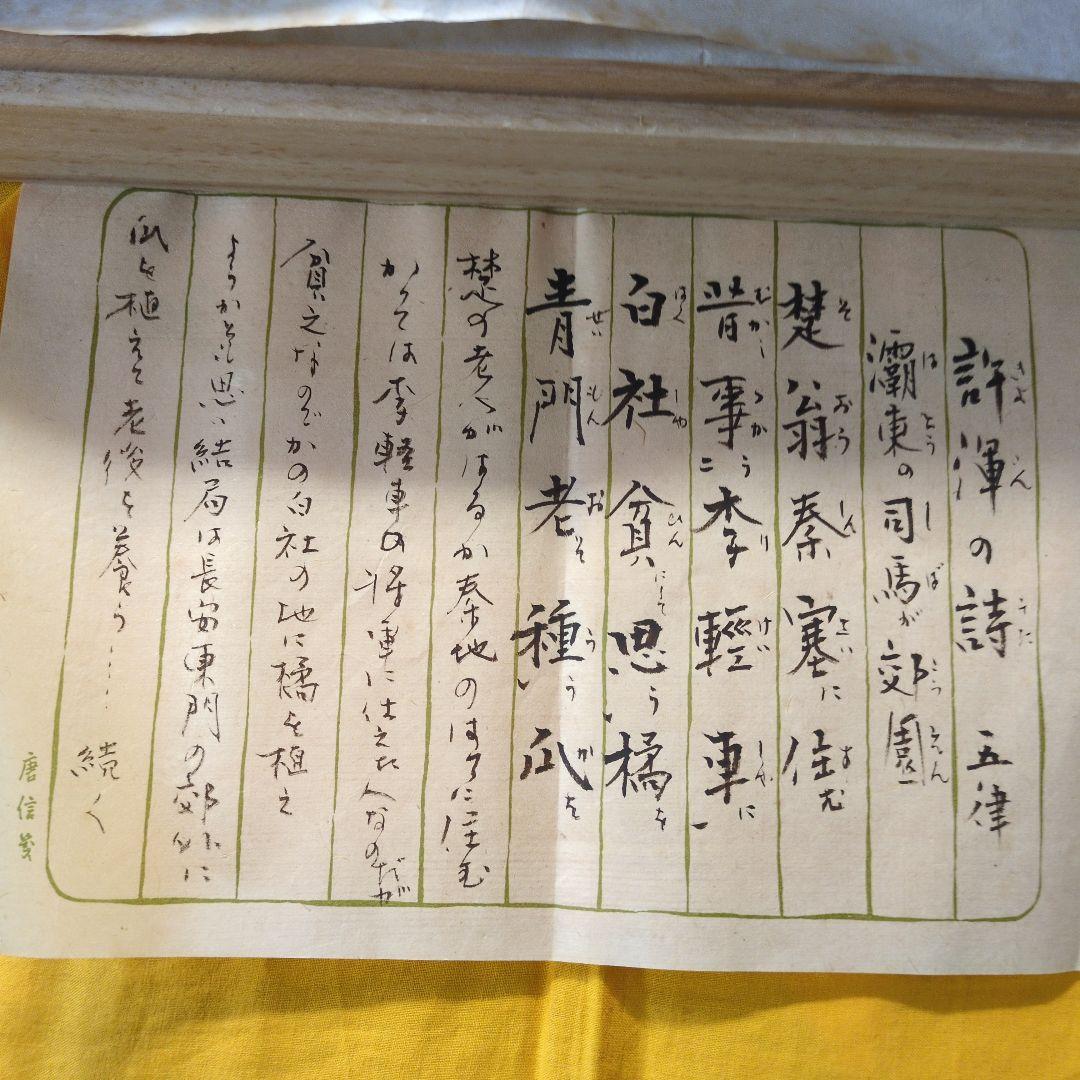 許渾の詩 五律
灞東の司馬が郊園
楚翁秦塞に住む
昔事う李輕車に
白社貧にして思う橘を
青門老そ種う瓜を
楚の老人がはるか秦地のはてに住む
かつては李軽車の将軍に仕えた人なのだが
貧乏なのでかの白社の地に橘を植え
ようかと思い結局は長安東門の郊外に
瓜を植えて老後を養う……
続く
唐信箋